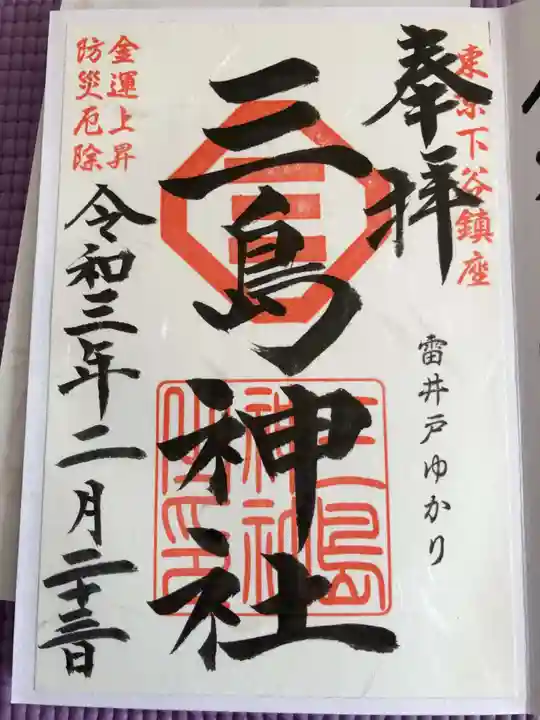 東京下谷鎮座
奉拝
雷井戸ゆかり
三島神社
三島
神社
金運上昇
防災厄除
令和三年二月二十三日